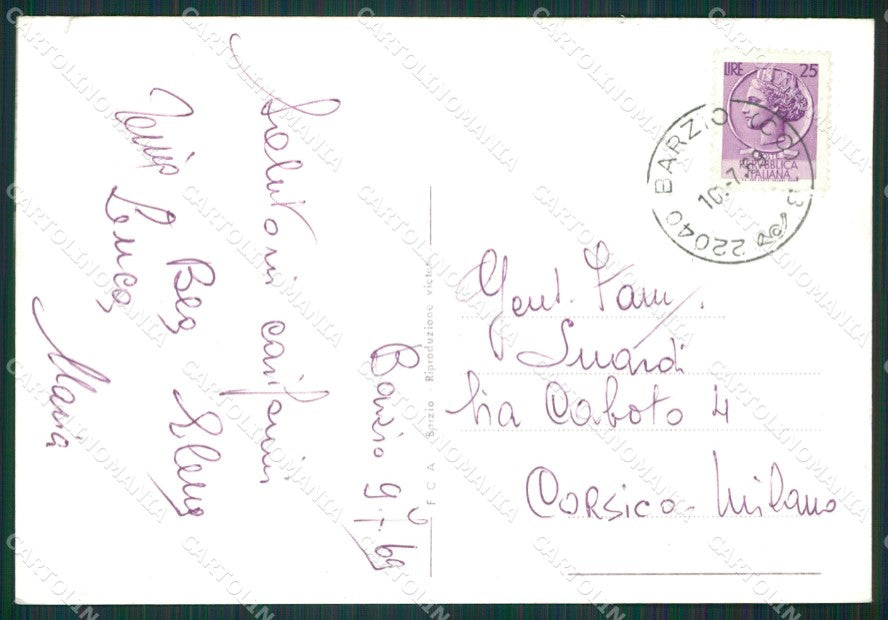 Barzio 9-7-69
Saluti carissimi
Bea Elena
Luca,
Maria
Gent. Fam.
Suardi
Via Caboto 4
Corsico - Milano
LIRE 25
REPVBBLICA
ITALIANA
22040 BARZIO (CO)
10.-7.69
F C A Barzio - Riproduzione vietata
CARTOLINOMANIA